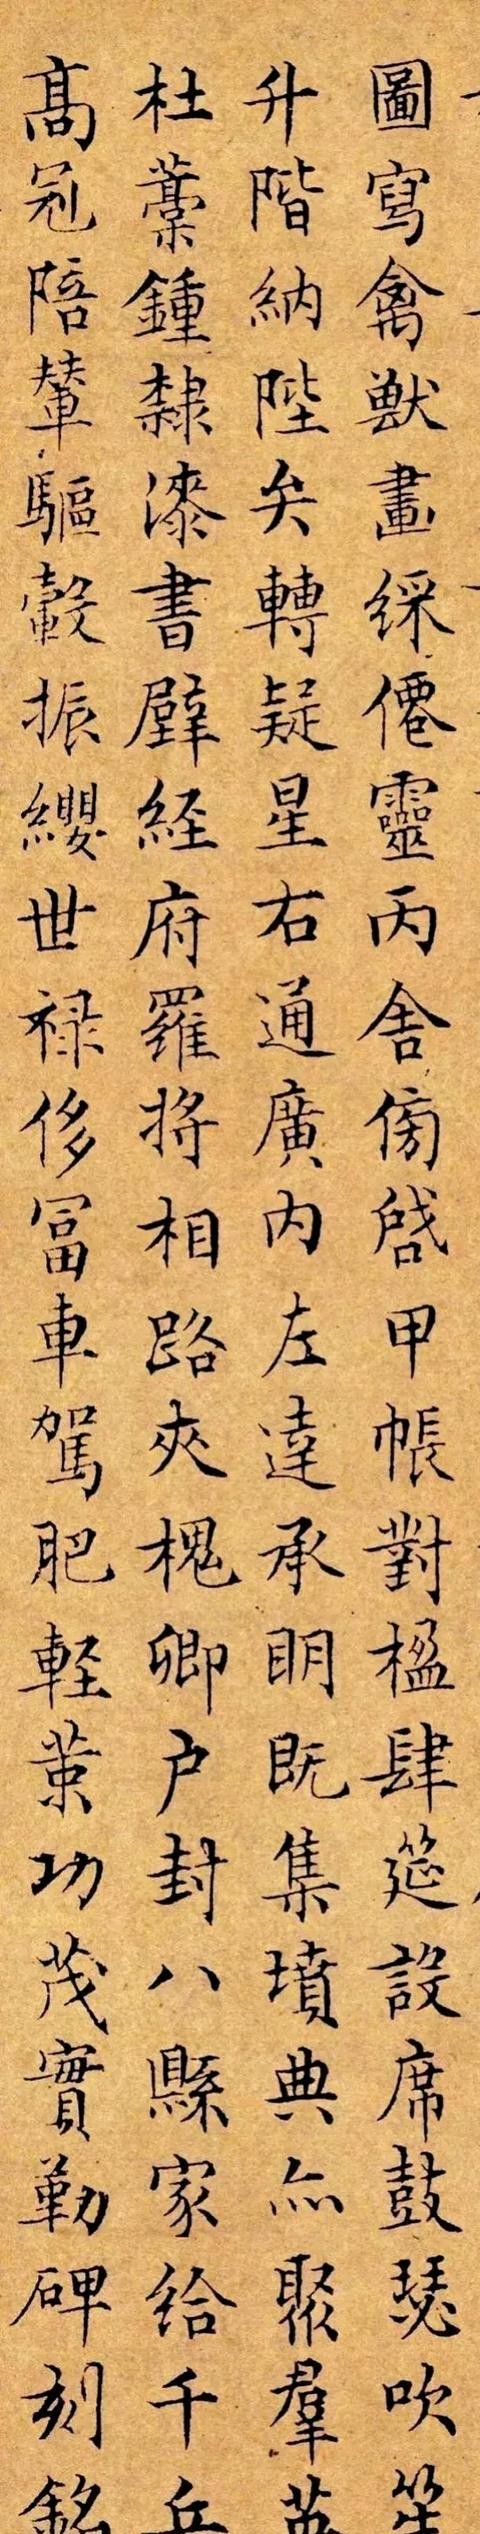 圖寫禽獸畫綵僊靈丙舍傍啓甲帳對楹肆筵設席鼓瑟吹笙
升階納陛弁轉疑星右通廣内左達承明既集墳典亦聚羣英
杜藁鍾隸漆書壁経府羅将相路夾槐卿户封八縣家給千兵
高冠陪輦驅轂振纓世禄侈冨車駕肥軽策功茂實勒碑刻銘